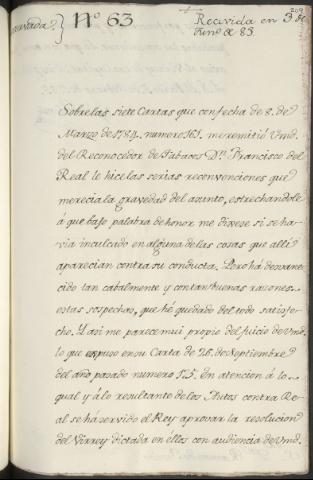 209
Nº 63
Recivida en 3 de
Jun.º de 85.
Sobre las siete Cartas que con fecha de 8. de
Marzo de 1784. numero 161. me remitió Vmd.
del Reconocedor de Tabacos D.n Francisco del
Real le hice las serias reconvenciones que
merecia la gravedad del asunto, estrechandole
á que bajo palabra de honor me dixese si se ha-
via inculcado en alguna de las cosas que alli
aparecian contra su conducta. Pero há desvane-
cido tan cabalmente y con tan buenas razones
estas sospechas, que hé quedado del todo satisfe-
cho. Y asi me parece mui propio del juicio de Vmd.
lo que expuso en su Carta de 26. de Septiembre
del año pasado numero 175. En atencion á lo
qual y á lo resultante de los Autos contra Re-
al se há servido el Rey aprovar la resolucion
del Virrey dictada en éllos con audiencia de Vmd.